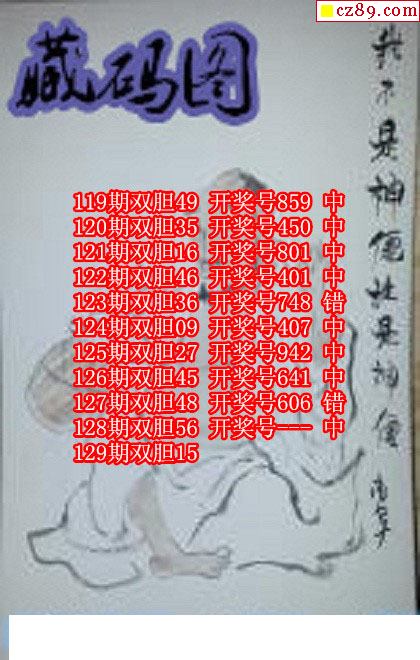 cz89.com
臧码图
119期双胆49 开奖号859 中
120期双胆35 开奖号450 中
121期双胆16 开奖号801 中
122期双胆46 开奖号401 中
123期双胆36 开奖号748 错
124期双胆09 开奖号407 中
125期双胆27 开奖号942 中
126期双胆45 开奖号641 中
127期双胆48 开奖号606 错
128期双胆56 开奖号--- 中
129期双胆15
我不是神仙谁是神仙